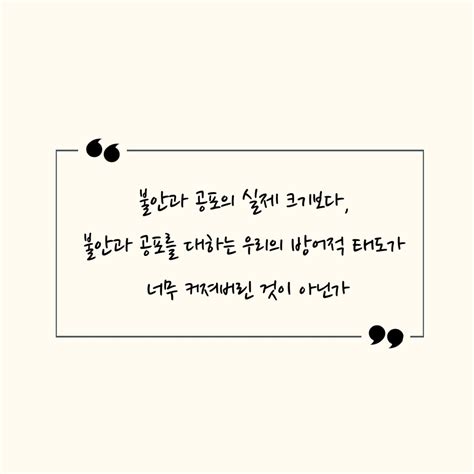 불안과 공포의 실제 크기보다,
불안과 공포를 대하는 우리의 방어적 태도가
너무 커져버린 것이 아닌가